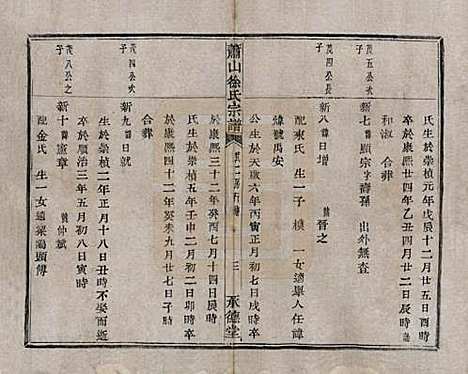 氏生於崇禎元年戊辰十二月廿五日酉時
卒於康熙廿四年乙丑四月廿二日辰時
和淑 合葬
茂五公次子
新七 諱顯宗字壽孫 出外無查
茂四公長子
新八 諱日增 舊晉之
配來氏 生一子 樸 一女適舉人任諱
號禹安
公生於天啟六年丙寅正月初七日戌時卒
於康熙三十二年癸酉七月十四日辰時
蕭山徐氏宗譜
三 承德堂
氏生於崇禎五年壬申二月初二日卯時卒
於康熙四十二年癸未九月廿七日子時
合葬
茂四公次子
新九 諱日就
生於崇禎二年正月十八日丑時不娶而逝
卒於順治三年五月初八日寅時
茂八公之子
新十 諱憲章 舊仲斌
配金氏 生一女適梁湖頭傅